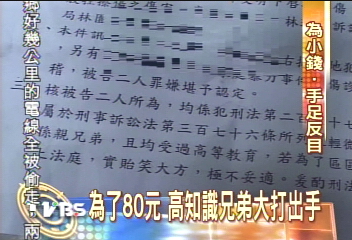 鄉好幾公里的電線全被偷走，兩
為小錢：手足反目
局林匪
本件訊
，另有
稽，被告二人罪嫌堪予認定。
核被告二人所為，均係犯刑法第二百
屬於刑事訴訟法第三百七十六條所列
係親兄弟，且均受過高等教育，若為了區區
上法庭，實貽笑大方，極不妥適。爰酌刑法
TVBS
為了80元 高知識兄弟大打出手